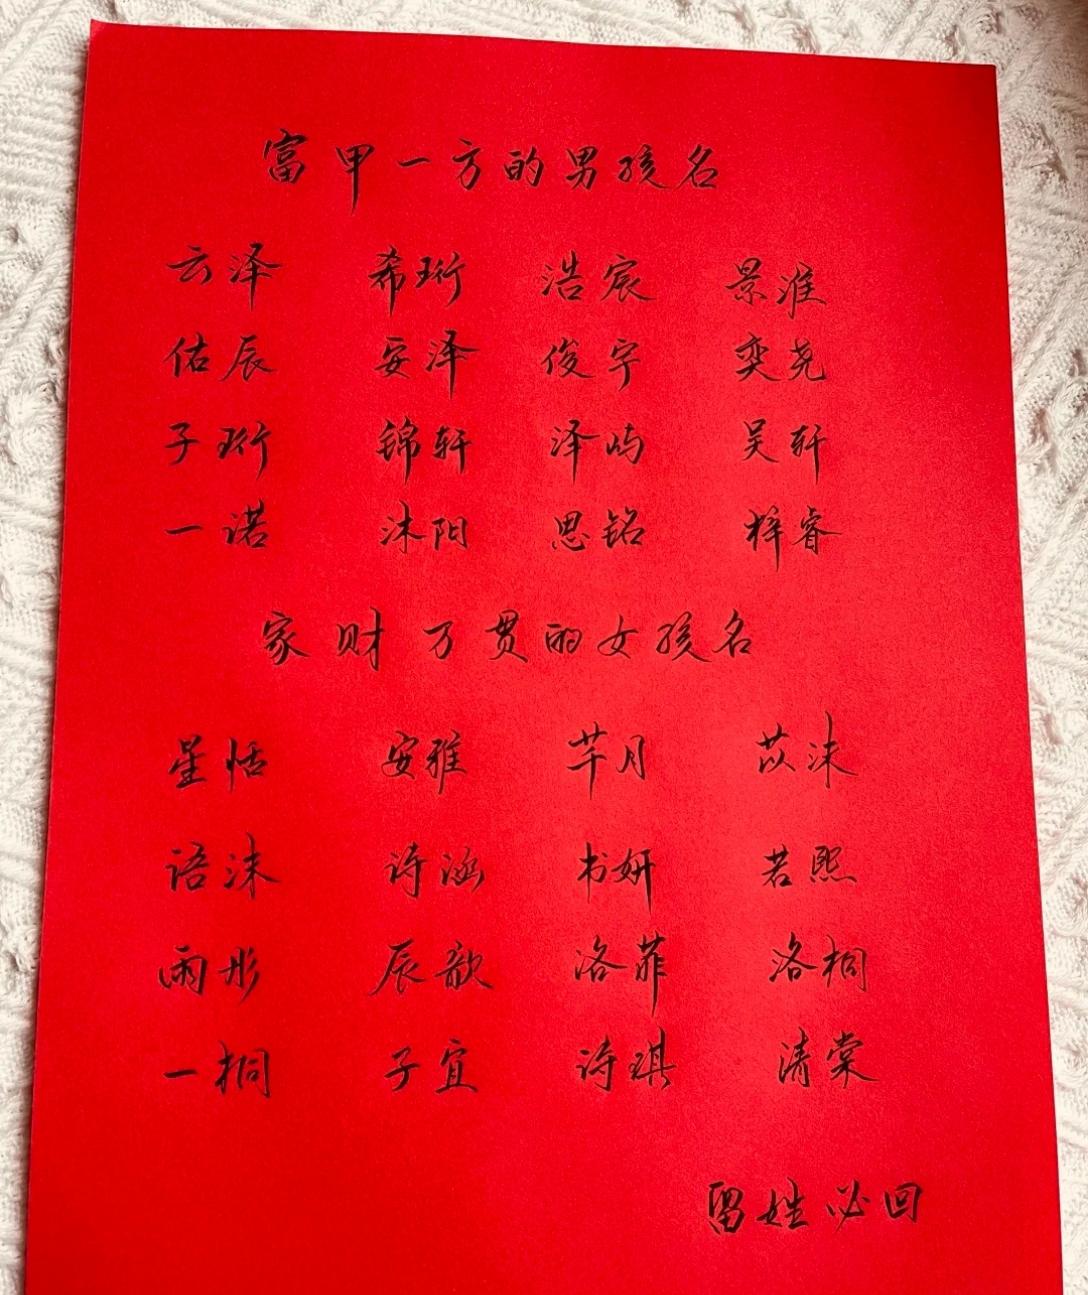 富甲一方的男孩名
云泽 希珩 浩宸 景淮
佑辰 安泽 俊宇 奕尧
子珩 锦轩 泽屿 吴轩
一诺 沐阳 思铭 梓睿
家财万贯的女孩名
星恬 安雅 芊月 苡沫
语沫 诗涵 书妍 若熙
雨彤 辰歆 洛菲 洛桐
一桐 子宜 诗琪 清棠
留姓必回